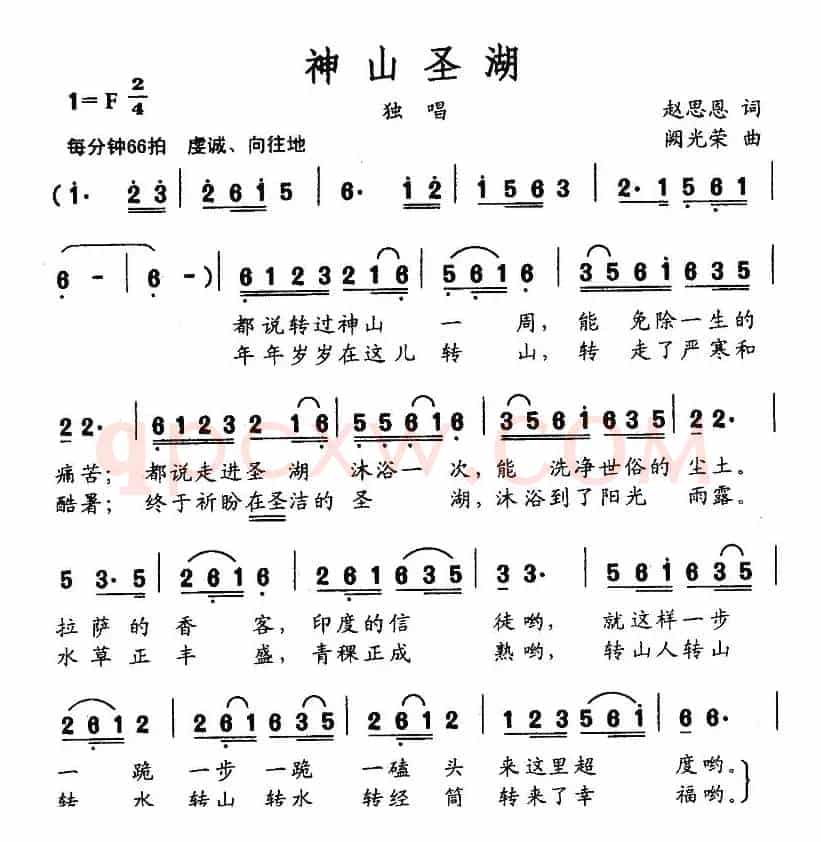 神山圣湖
1=F 2/4
独唱
赵思恩 词
每分钟66拍 虔诚、向往地
阙光荣 曲
(1· 2 3 | 2 6 1 5 | 6· 1 2 | 1 5 6 3 | 2· 1 5 6 1 |
6 - | 6 -) | 6 1 2 3 2 1 6 | 5 6 1 6 | 3 5 6 1 6 3 5 |
都说转过神山 一 周,能 免除一生的
年年岁岁在这儿转 山,转 走了严寒和
2 2· | 6 1 2 3 2 1 6 | 5 5 6 1 6 | 3 5 6 1 6 3 5 | 2 2· |
痛苦;都说走进圣 湖 沐浴一次,能 洗净世俗的 尘土。
酷暑;终于祈盼在圣洁的 圣 湖,沐浴到了阳光 雨露。
5 3· 5 | 2 6 1 6 | 2 6 1 6 3 5 | 3 3· | 5 6 1 6 3 5 |
拉萨的香 客,印度的信 徒哟,就这样一步
水草正丰 盛,青稞正成 熟哟,转山人转山
2 6 1 2 | 2 6 1 6 3 5 | 2 6 1 2 | 1 2 3 5 6 1 | 6 6· |
一 跪 一步 一跪 一磕 头 来这里超 度哟。
转 水 转山 转水 转经 筒 转来了幸 福哟。
qpcxw.com